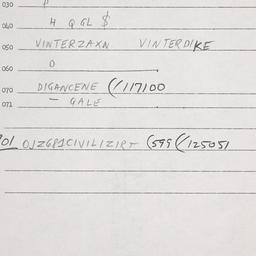 030 P
040 H Q GL $
050 VINTERZAXN VINTERDIKE
060 O
070 DIGANCENE (/117100
071 - GALE
201 OJZGP1CIVILIZIRT (599 (125051